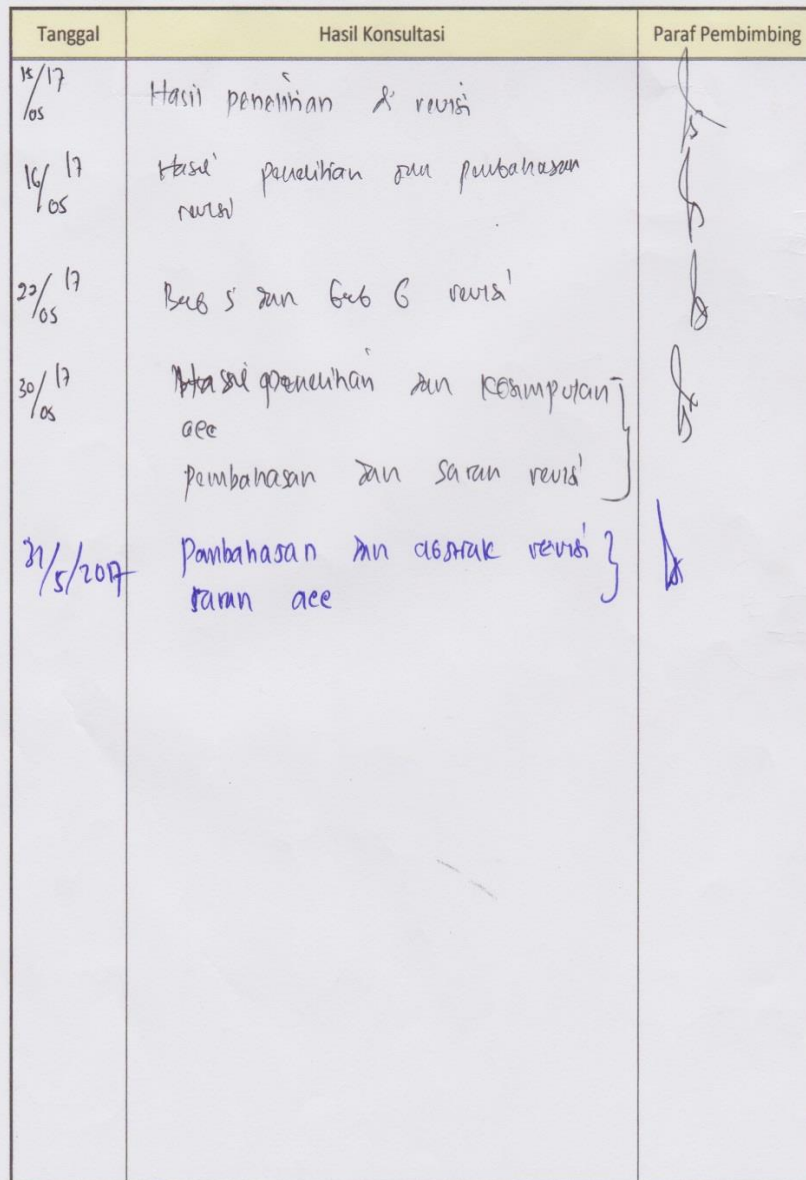 Tanggal Hasil Konsultasi Paraf Pembimbing
15/05 17 Hasil penelitian di revisi
16/05 17 Hasil penelitian dan pembahasan
revisi
22/05 17 Bab 5 dan bab 6 revisi
30/05 17 Hasil penelitian dan kesimpulan
acc
pembahasan dan saran revisi
31/5/2017 Pembahasan dan abstrak revisi
saran acc